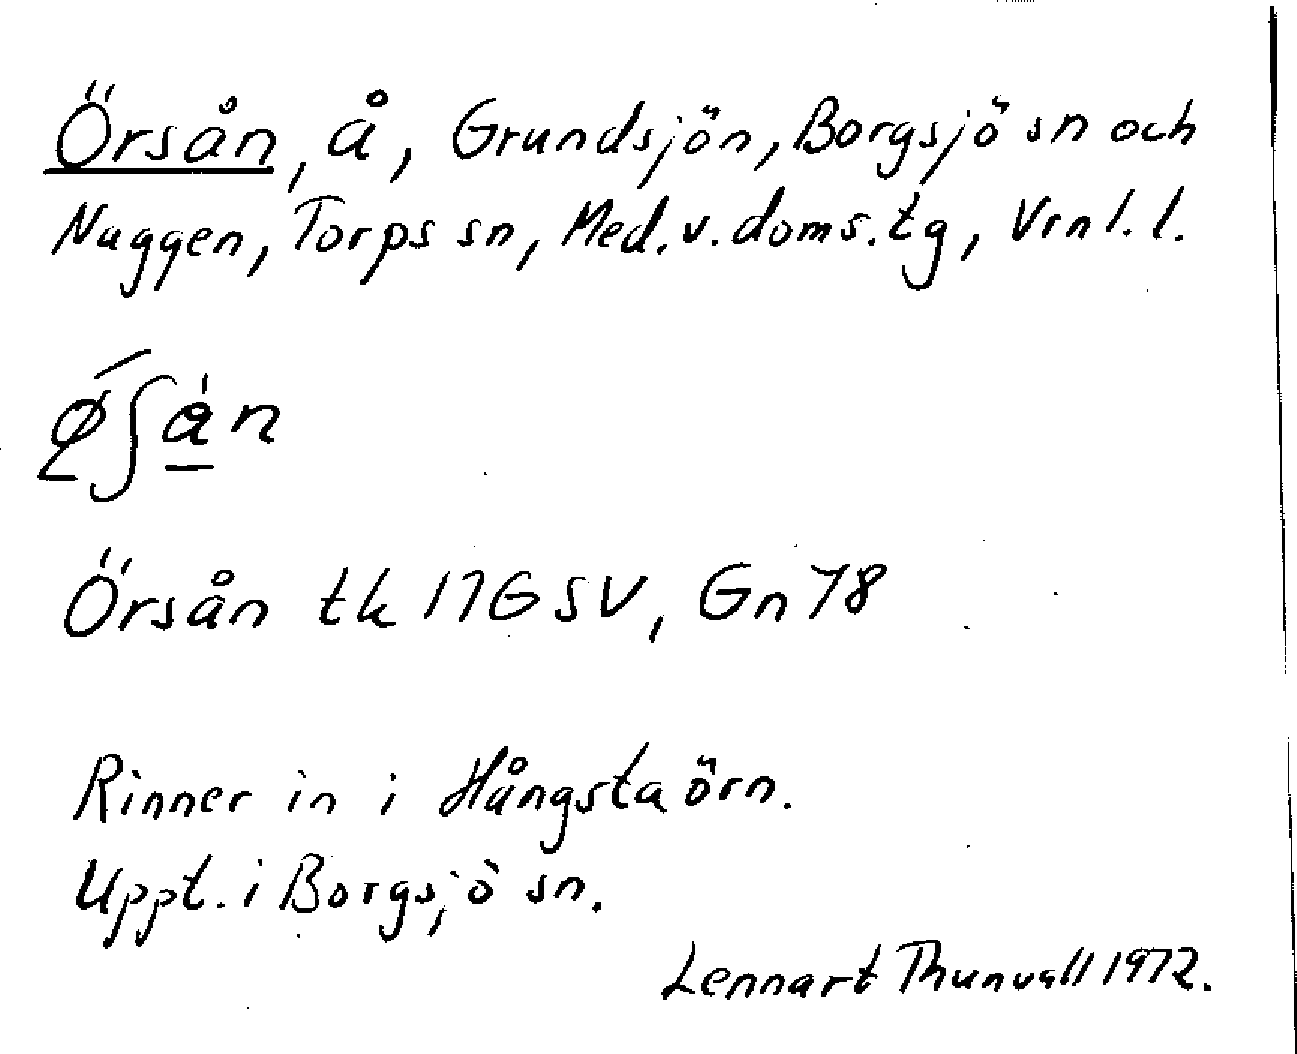 Örsån, å, Grundsjön, Borgsjö sn och
Naggen, Torps sn, Med. v. doms. tg, Vrnl. l.
Örsån tk 17G SV, Gn 78
Rinner in i Hångstaörn.
Uppt. i Borgsjö sn.
Lennart Thunvall 1972.